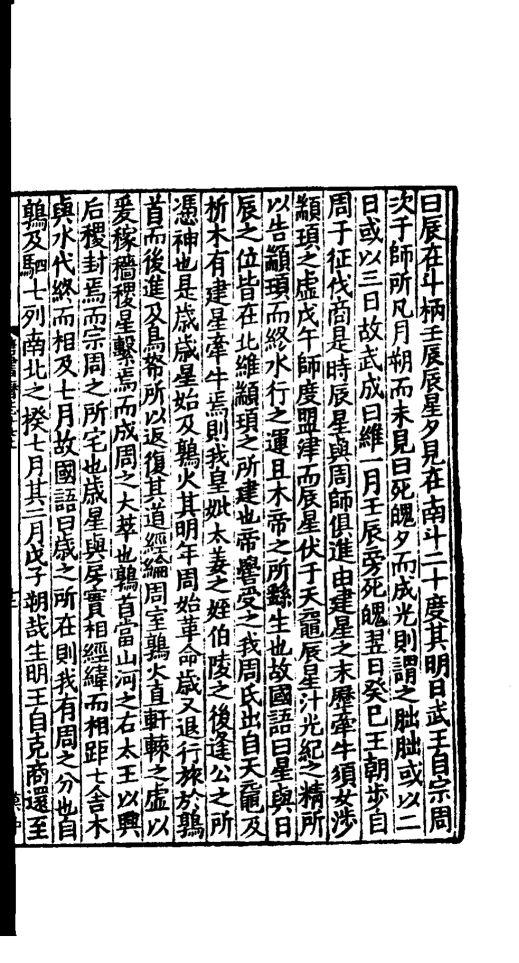 曰辰在斗柄壬辰辰星夕見在南斗二十度其明日武王自宗周
次于師所凡月朔而未見曰死魄夕而成光則謂之朏朏或以二
日或以三日故武成曰維一月壬辰旁死魄翌日癸巳王朝步自
周于征伐商是時辰星與周師俱進由建星之末歷牽牛須女涉
顓頊之虛戊午師度盟津而辰星伏于天黿辰星汁光紀之精所
以告顓頊而終水行之運且木帝之所繇生也故國語曰星與日
辰之位皆在北維顓頊之所建也帝嚳受之我周氏出自天黿及
析木有建星牽牛焉則我皇妣太姜之姪伯陵之後逢公之所
憑神也是歲歲星始及鶉火其明年周始革命歲又退行旅於鶉
首而後進及鳥帑所以返復其道經綸周室鶉火直軒轅之虛以
爰稼穡稷星繫焉而成周之大萃也鶉首當山河之右太王以興
后稷封焉而宗周之所宅也歲星與房實相經緯而相距七舍木
與水代終而相及七月故國語曰歲之所在則我有周之分也自
鶉及駟七列南北之揆七月其二月戊子朔哉生明王自克商還至